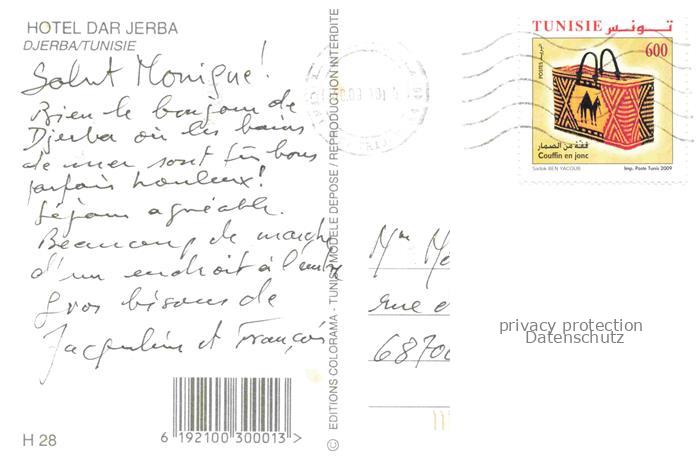 HOTEL DAR JERBA
DJERBA/TUNISIE
Salut Monique!
Bien le bonjour de
Djerba où les bains
de mer sont très bons
parfois houleux!
Séjour agréable.
Beaucoup de marche
d'un endroit à l'autre
Gros bisous de
Jacqueline et François
H 28
6 192100 300013 >
© EDITIONS COLORAMA - TUNIS MODELE DEPOSE / REPRODUCTION INTERDITE
TUNISIE تونس
600
POSTES البريد
قفة من الصمار
Couffin en jonc
Sadok BEN YACOUB
Imp. Poste Tunis 2009
Mme
rue
68700
privacy protection
Datenschutz